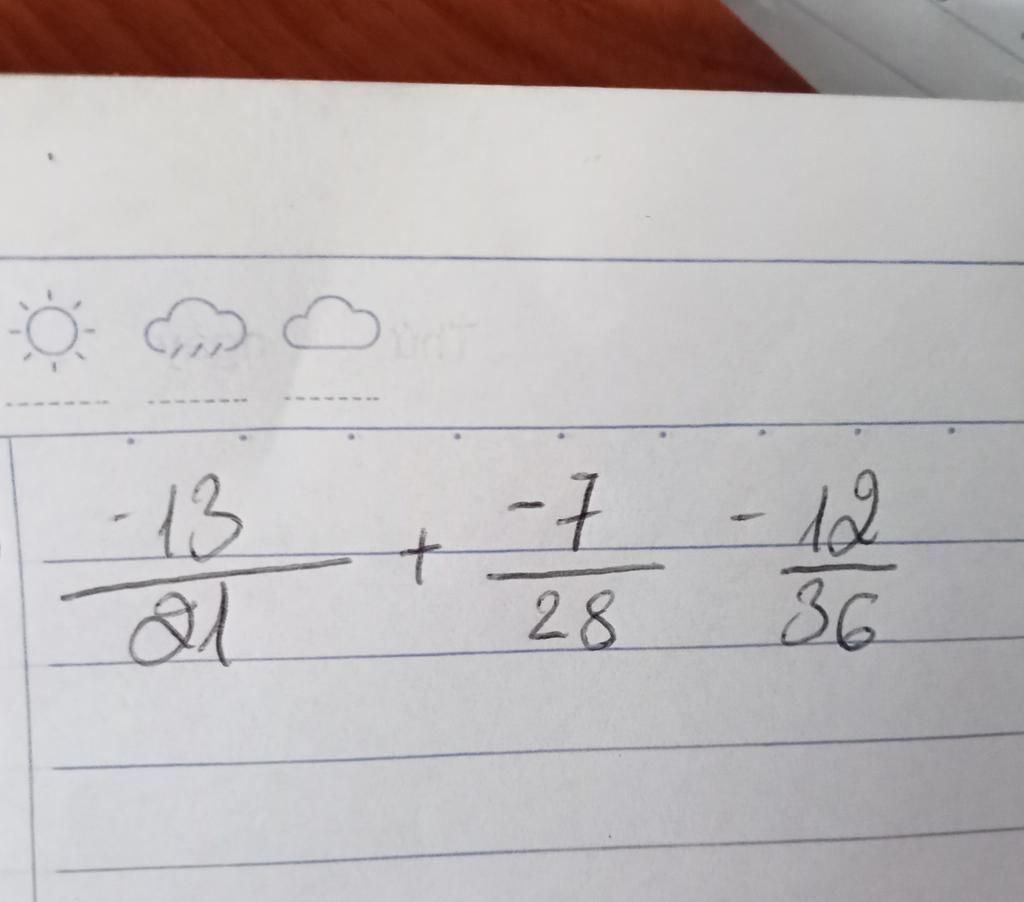 -13/21 + -7/28 - 12/36